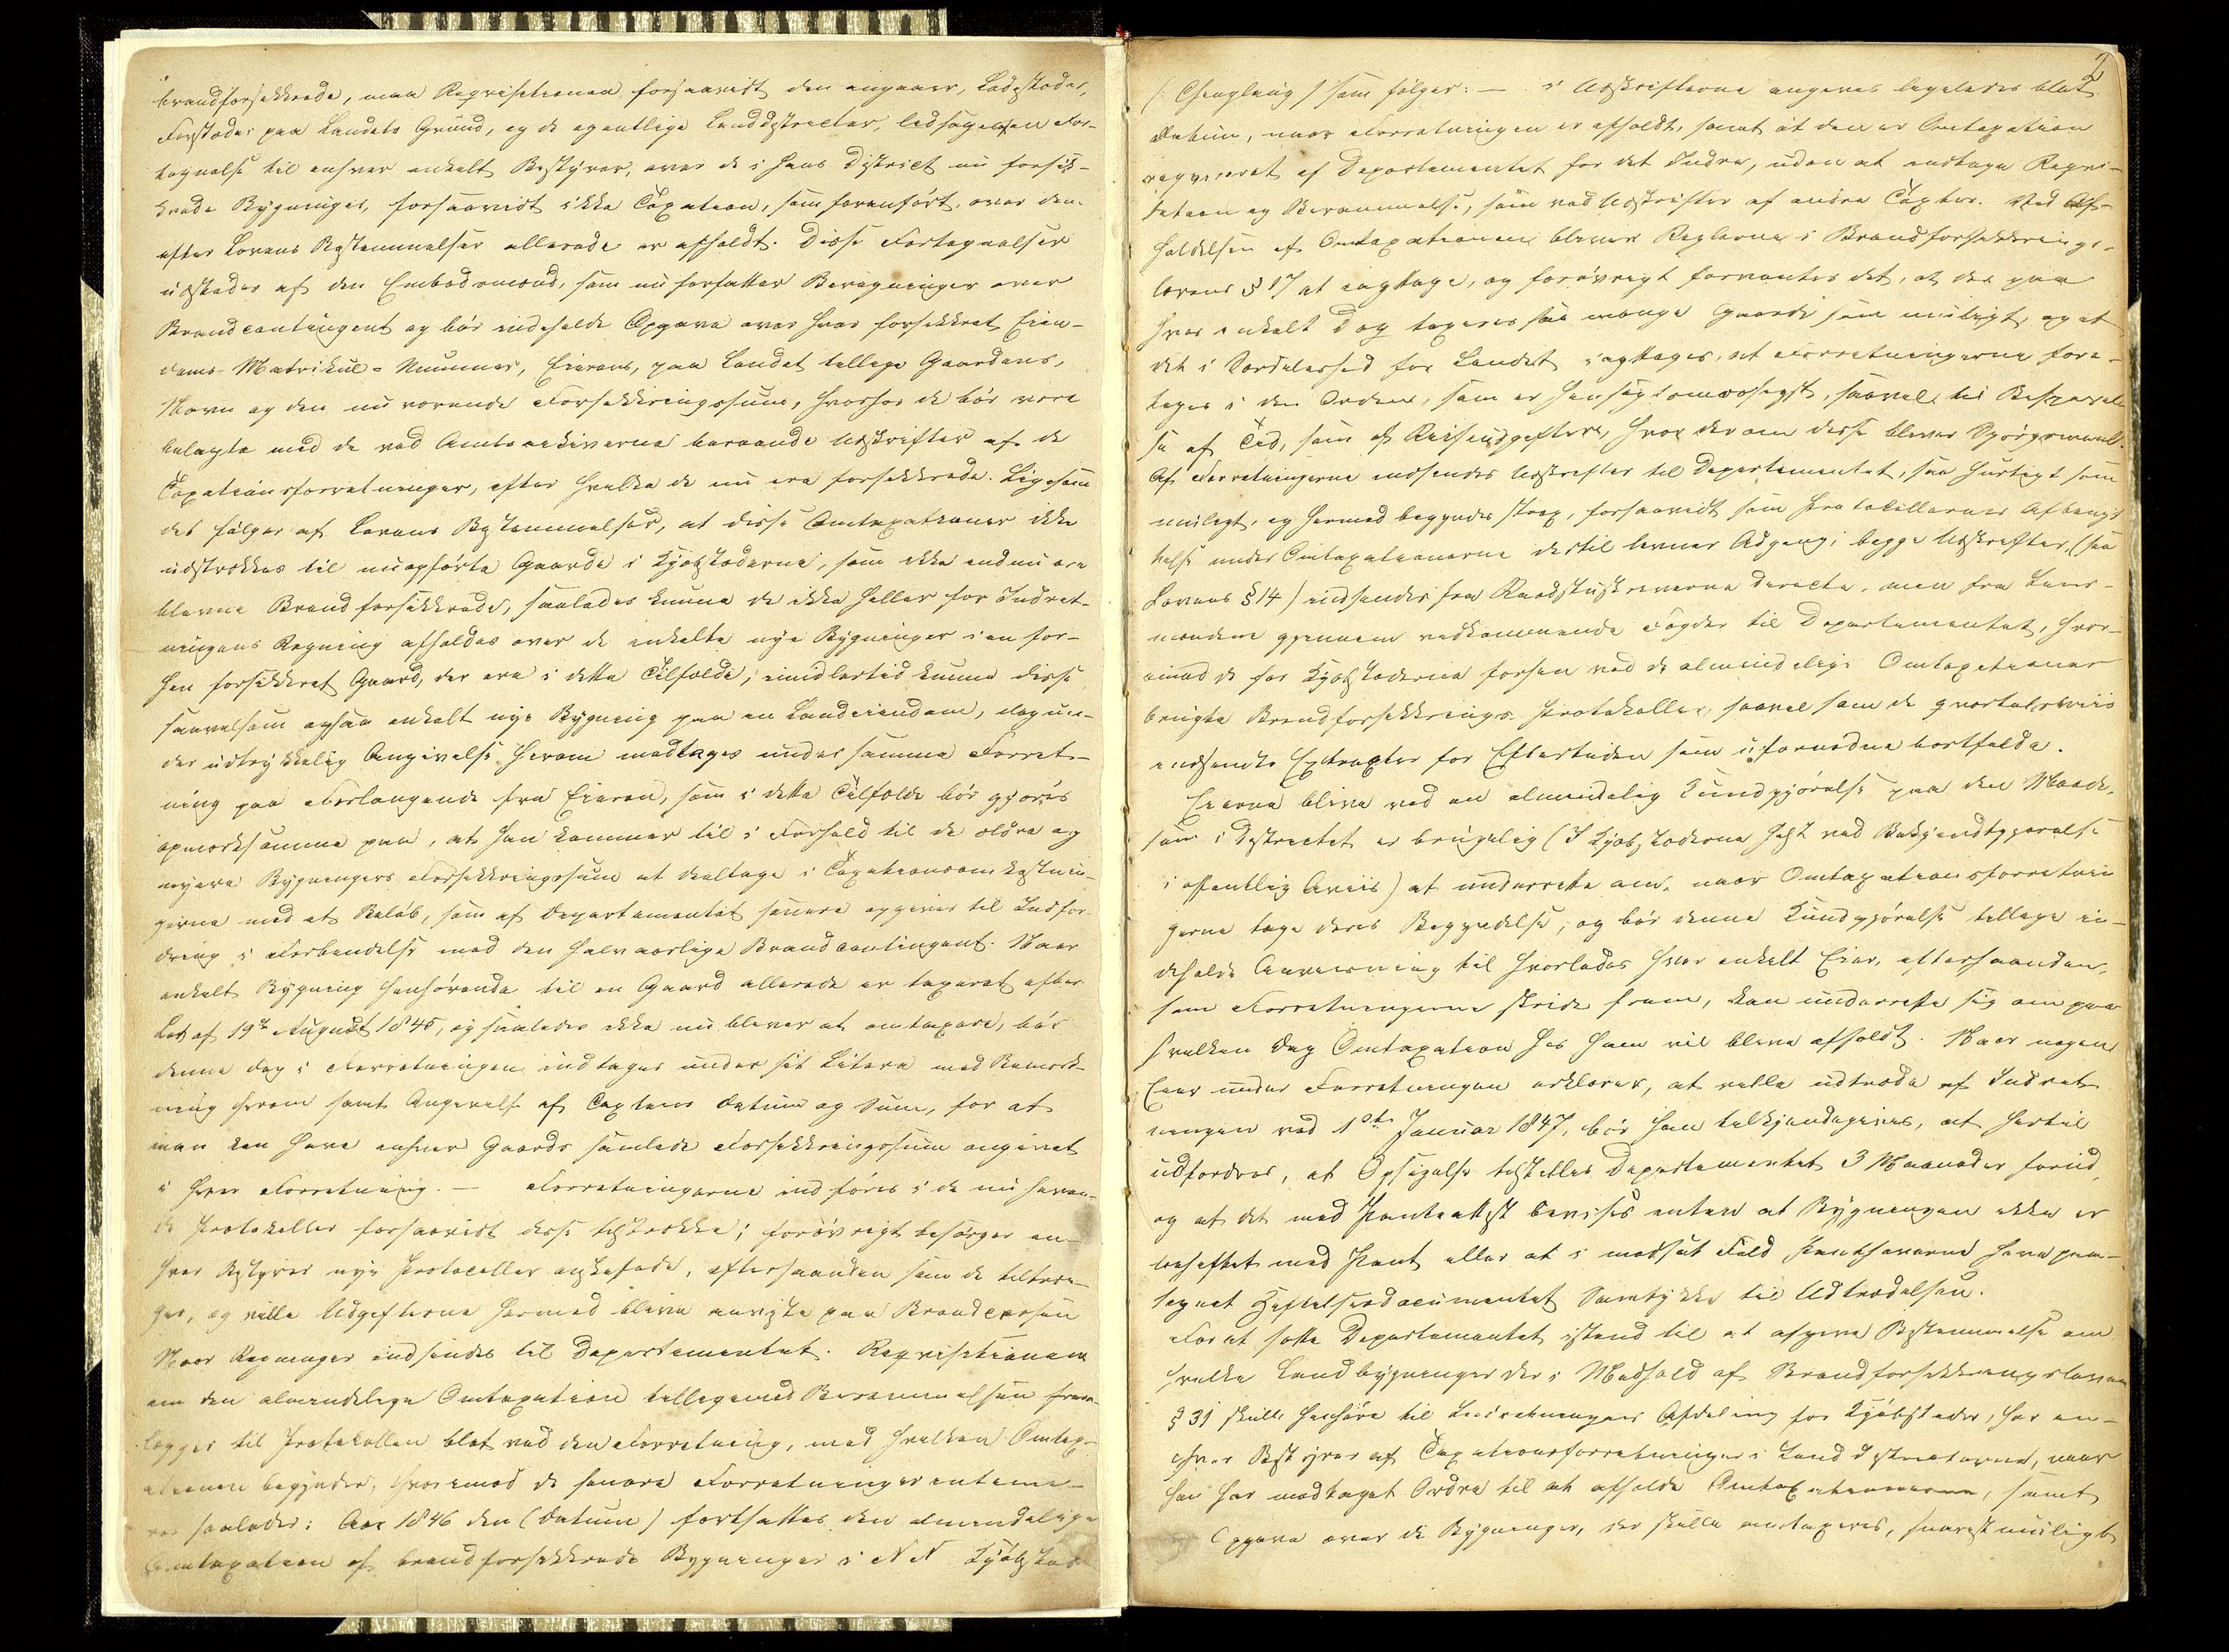 brandforsikkrede, maa Reqvisitionen forsaavidt den angaaer, Ladesteder,
Forstæder paa Landets Grund, og de egentlige Landdistricter, ledsages af en For-
tegnelse til enhver enkelt Bestyrer, over de i hans District nu forsik-
krede Bygninger, forsaavidt ikke Taxation, som foranført, over dem
efter Lovens Bestemmelser allerede er afholdt. Disse Fortegnelser
udstædes af den Embedsmand, som nu forfatter Beregninger over
Brandcontingent og bør indeholde Opgave over hver forsikkret Eien-
doms Matrikul-Nummer, Eierens, paa Landet tillige Gaardens,
Navn og den nu værende Forsikkringssum, hvorhos de bør være
belagte med de ved Amtsarkiverne beroende Udskrifter af de
Taxationsforretninger, efter hvilke de nu ere forsikkrede. Ligesom
det følger af Lovens Bestemmelser, at disse Omtaxationer ikke
udstrækkes til nyopførte Gaarde i Kjøbstæderne, som ikke endnu ere
blevne Brandforsikkrede, saaledes kunne de ikke heller for Indret-
ningens Regning afholdes over de enkelte nye Bygninger i en for-
hen forsikkret Gaard, der ere i dette Tilfælde; imidlertid kunne disse
saavelsom ogsaa enkelt nye Bygning paa en Landeiendom, dog un-
der udtrykkelig Angivelse herom medtages under samme Forret-
ning paa Forlangende fra Eieren, som i dette Tilfælde bør gjøres
opmærksomme paa, at han kommer til i Forhold til de ældre og
nyere Bygningers Forsikkringssum at deeltage i Taxationsomkostnin-
gerne med et Beløb, som af Departementet senere opgives til Indfor-
dring i Forbindelse med den halvaarlige Brandcontingent. Naar
enkelt Bygning henhørende til en Gaard allerede er taxeret efter
Lov af 19de August 1845, og saaledes ikke nu bliver at omtaxere, bør
denne dog i Forretningen indtages under sit Litera med Bemærk-
ning herom samt Angivelse af Taxtens Datum og Sum, for at
man kan have enhver Gaards samlede Forsikkringssum angivet
i hver Forretning. — Forretningerne indføres i de nu haven-
de Protokoller forsaavidt disse tilstrække; forøvrigt besørger en-
hver Bestyrer nye Protocoller anskaffede, efterhaanden som de tiltræn-
ges, og ville Udgifterne hermed blive anviste paa Brandcassen
Naar Regninger indsendes til Departementet. Reqvisitionen
om den almindelige Omtaxation tilligemed Berammelsen frem-
lægges til Protokollen blot ved den Forretning, med hvilken Omtax-
ationen begynder, hvorimod de senere Forretninger intime-
res saaledes: Aar 1846 den (Datum) fortsattes den almindelige
Omtaxation af brandforsikkrede Bygninger i N N Kjøbstad
2
som følger: — i Udskrifterne angives ligeledes blot
Datum, naar Forretningen er afholdt, samt at den er Omtaxation
reqvireret af Departementet for det Indre, uden at indtage Reqvi-
sition og Berammelse, som ved Udskrifter af andre Taxter. Ved Af-
holdelsen af Omtaxationen bliver Reglerne i Brandforsikkrings-
lovens § 17 at iagttage, og forøvrigt forventes det, at der paa
hver enkelt Dag taxeres saa mange Gaarde som muligt, og at
det i Særdeleshed for Landet iagttages, at Forretningerne fore-
tages i den Orden, som er hensigtsmæssigst, saavel til Besparel-
se af Tid, som af Reiseudgiftere, hvor der om disse bliver Spørgsmaal.
Af Forretningerne indsendes Udskrifter til Departementet, saa hurtigt som
muligt, og hermed begyndes strax, forsaavidt som Protokollernes Afbenyt-
telse under Omtaxationerne dertil levner Adgang; begge Udskrifter, (see
Lovens § 14) indsendes fra Raadstuskriverne directe, men fra Lens-
mændene gjennem vedkommende Fogder til Departementet, hvor-
imod de for Kjøbstæderne forhen ved de almindelige Omtaxationer
brugte Brandforsikkrings-Protokoller, saavel som de qvartalsviis
indsendte Extracter for Eftertiden som ufornødne bortfalde.
Eierne blive ved en almindelig Kundgjørelse paa den Maade,
som i Districtet er brugelig (I Kjøbstæderne helst ved Bekjendtgjørelse
i offentlig Aviis) at underrette om, naar Omtaxationsforretnin
gerne tage deres Begyndelse, og bør denne Kundgjørelse tillige in-
deholde Anviisning til hvorledes hver enkelt Eier, efterhaanden,
som Forretningerne skride frem, kan underrette sig om paa
hvilken Dag Omtaxation hos ham vil blive afholdt. Naar nogen
Eier under Forretningen erklærer, at ville udtræde af Indret-
ningen ved 1ste Januar 1847, bør han tilkjendegives, at hertil
udfordres, at Opsigelse tilstilles Departementet 3 Maaneder forud,
og at det med Pantattest bevises enten at Bygningen ikke er
behæftet med Pant eller at i modsat Fald Panthaverne have paa-
tegnet Hæftelsesdocumentet Samtykke til Udtrædelsen.
For at sætte Departementet istand til at afgive Bestemmelse om
hvilke Landbygninger der i Medhold af Brandforsikkringsloven
§ 31 skulle henhøre til Indretningens Afdeling for Kjøbstæder, har en-
hver Bestyrer af Taxationsforretninger i Landdistricterne, naar
han har modtaget Ordre til at afholde Omtaxationerne, samt
Opgave over de Bygninger, der skulle omtaxeres, snarest muligt